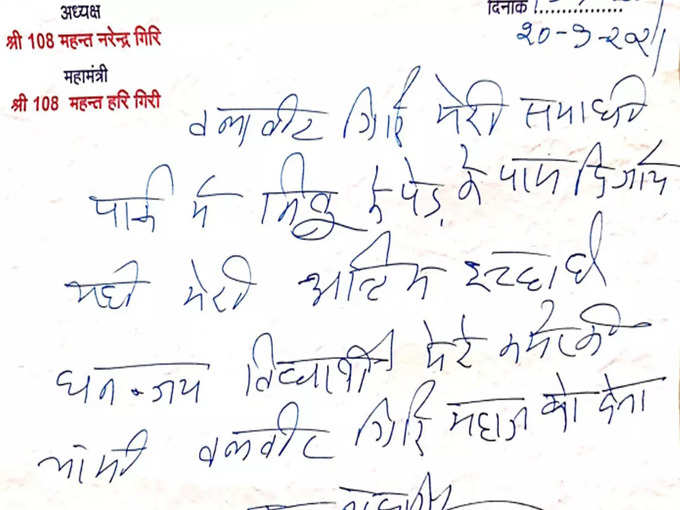 अध्यक्ष
श्री 108 महन्त नरेन्द्र गिरि
महामंत्री
श्री 108 महन्त हरि गिरी
दिनांक :
20-9-2021
वलवीर गिरि मेरी समाधी
पार्क मे निबु के पेड़ के पास दि जाये
यही मेरी अन्तिम इच्छा है
धनन्जय विद्यार्थी मेरे कमरे की
चाभी वलवीर गिरि महाराज को देना